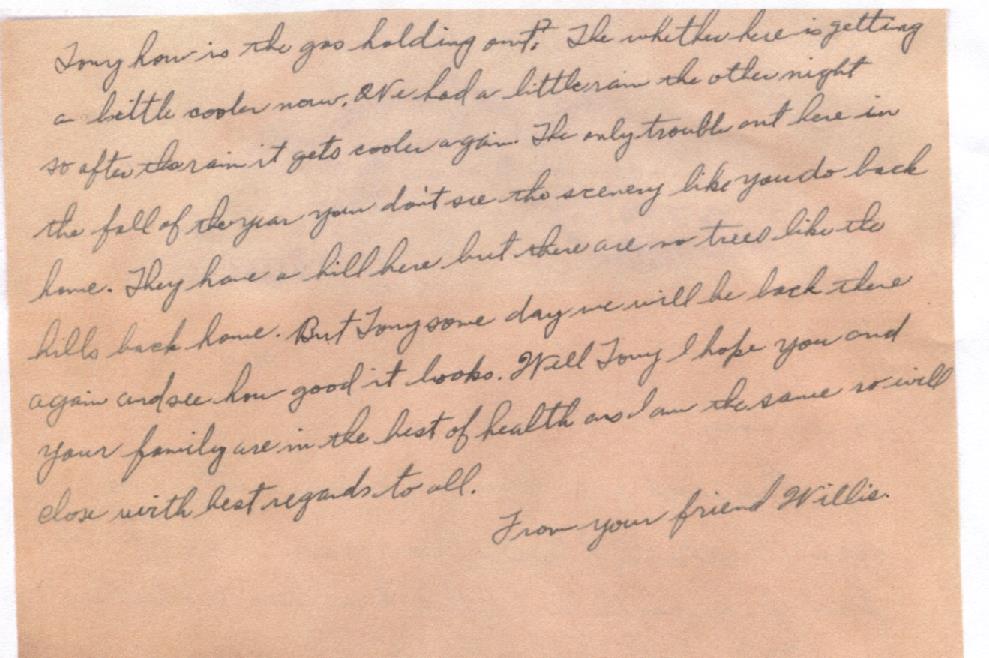 Tony how is the gas holding out? The whether here is getting
a little cooler now. We had a little rain the other night
so after the rain it gets cooler again. The only trouble out here in
the fall of the year you don't see the scenery like you do back
home. They have a hill here but there are no trees like the
hills back home. But Tony some day we will be back there
again and see how good it looks. Well Tony I hope you and
your family are in the best of health as I am the same so will
close with best regards to all.
From your friend Willis.